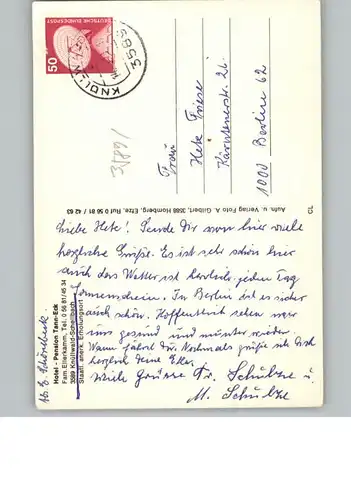 DEUTSCHE BUNDESPOST
50
3589
KNÜLLW
Frau
Hete Friese
Kärntenerstr. 26
1000 Berlin 62
Aufn. u. Verlag Foto A. Gilbert, 3588 Homberg, Efze, Ruf 0 56 81 / 42 63
CL
Liebe Hete! Sende Dir von hier viele
herzliche Grüße. Es ist sehr schön hier
auch das Wetter ist herrlich jeden Tag
Sonnenschein. In Berlin ist es sicher
auch schön. Hoffentlich sehen wir
uns gesund und munter wieder.
Wann fährst Du. Nochmals grüße ich Dich
herzlich Deine Elke.
Viele Grüsse Fr. Schulze u.
M. Schulze
Hotel - Pension Tann-Eck
Fam. Ellerkamm, Tel. 0 56 81/45 34
3589 Knüllwald-Schellbach
Staatl. anerk. Erholungsort